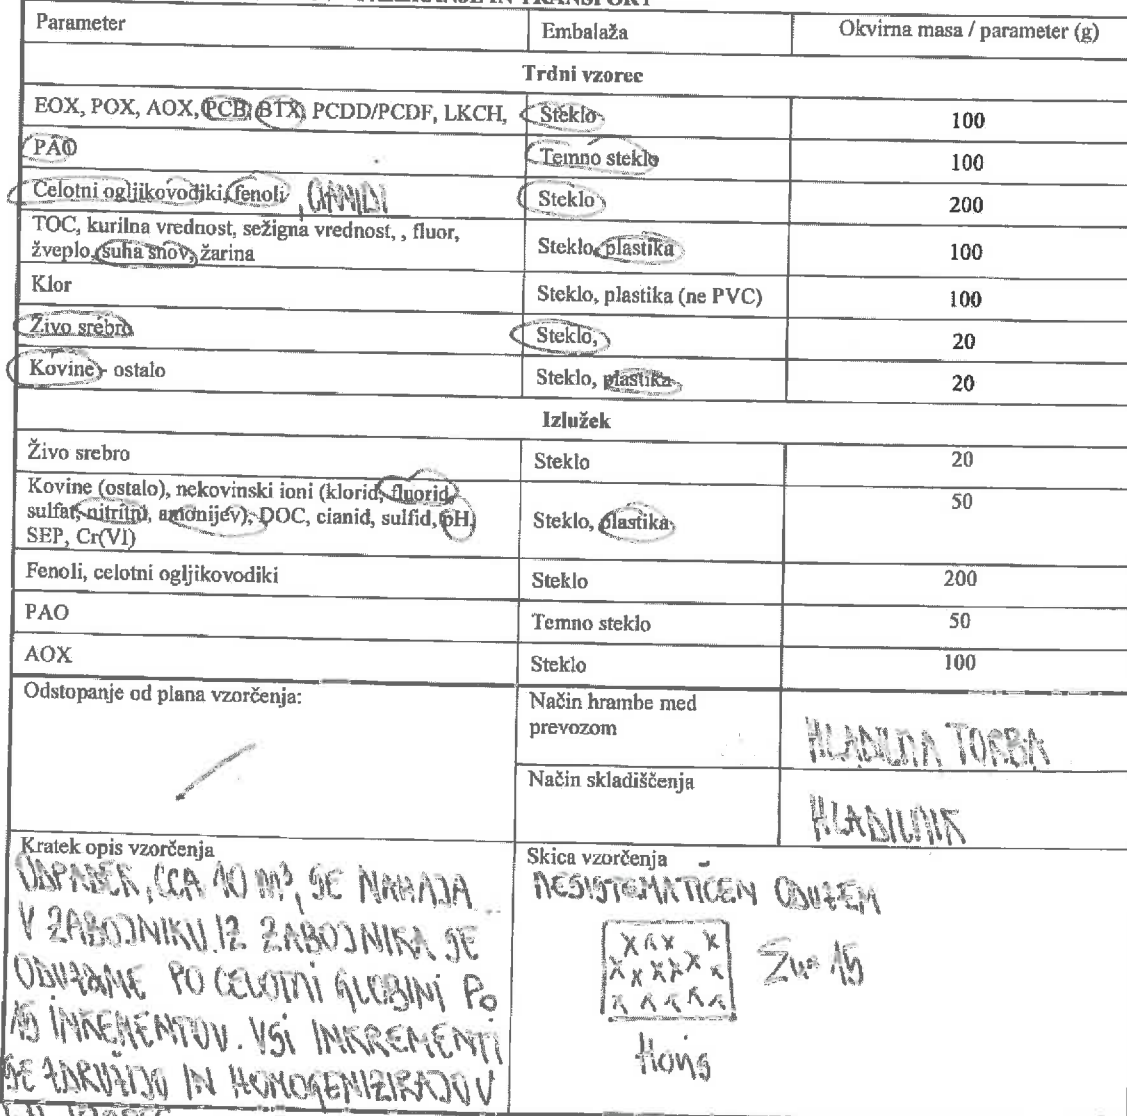 PAKIRANJE IN TRANSPORT
Parameter Embalaža Okvirna masa / parameter (g)
Trdni vzorec
EOX, POX, AOX, PCB, BTX, PCDD/PCDF, LKCH, Steklo 100
PAO Temno steklo 100
Celotni ogljikovodiki, fenoli, CIANIDI Steklo 200
TOC, kurilna vrednost, sežigna vrednost, , fluor,
žveplo, suha snov, žarina Steklo, plastika 100
Klor Steklo, plastika (ne PVC) 100
Živo srebro Steklo, 20
Kovine - ostalo Steklo, plastika 20
Izlužek
Živo srebro Steklo 20
Kovine (ostalo), nekovinski ioni (klorid, fluorid,
sulfat, nitritni, amonijev), DOC, cianid, sulfid, pH, Steklo, plastika 50
SEP, Cr(VI)
Fenoli, celotni ogljikovodiki Steklo 200
PAO Temno steklo 50
AOX Steklo 100
Odstopanje od plana vzorčenja:
Način hrambe med
prevozom
HLADILNA TORBA
Način skladiščenja
HLADILNIK
Kratek opis vzorčenja
ODPADEK, CCA 10 m³, SE NAHAJA
V ZABOJNIKU. IZ ZABOJNIKA SE
ODVZAME PO CELOTNI GLOBINI PO
15 INKREMENTOV. VSI INKREMENTI
SE ZDRUŽIJO IN HOMOGENIZIRAJO V
Skica vzorčenja
NESISTEMATIČEN ODVZEM
x x x x
x x x x x x
x x x x x